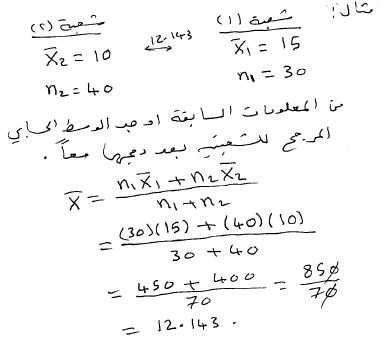 مثال:
شعبة (١) شعبة (٢)
X̄₁ = 15 ←12.143→ X̄₂ = 10
n₁ = 30 n₂ = 40
من المعلومات السابقة اوجد الوسط الحسابي
المرجح للشعبتين بعد دمجهما معاً .
X̄ = (n₁X̄₁ + n₂X̄₂) / (n₁ + n₂)
= ((30)(15) + (40)(10)) / (30 + 40)
= (450 + 400) / 70 = 850 / 70
= 12.143 .